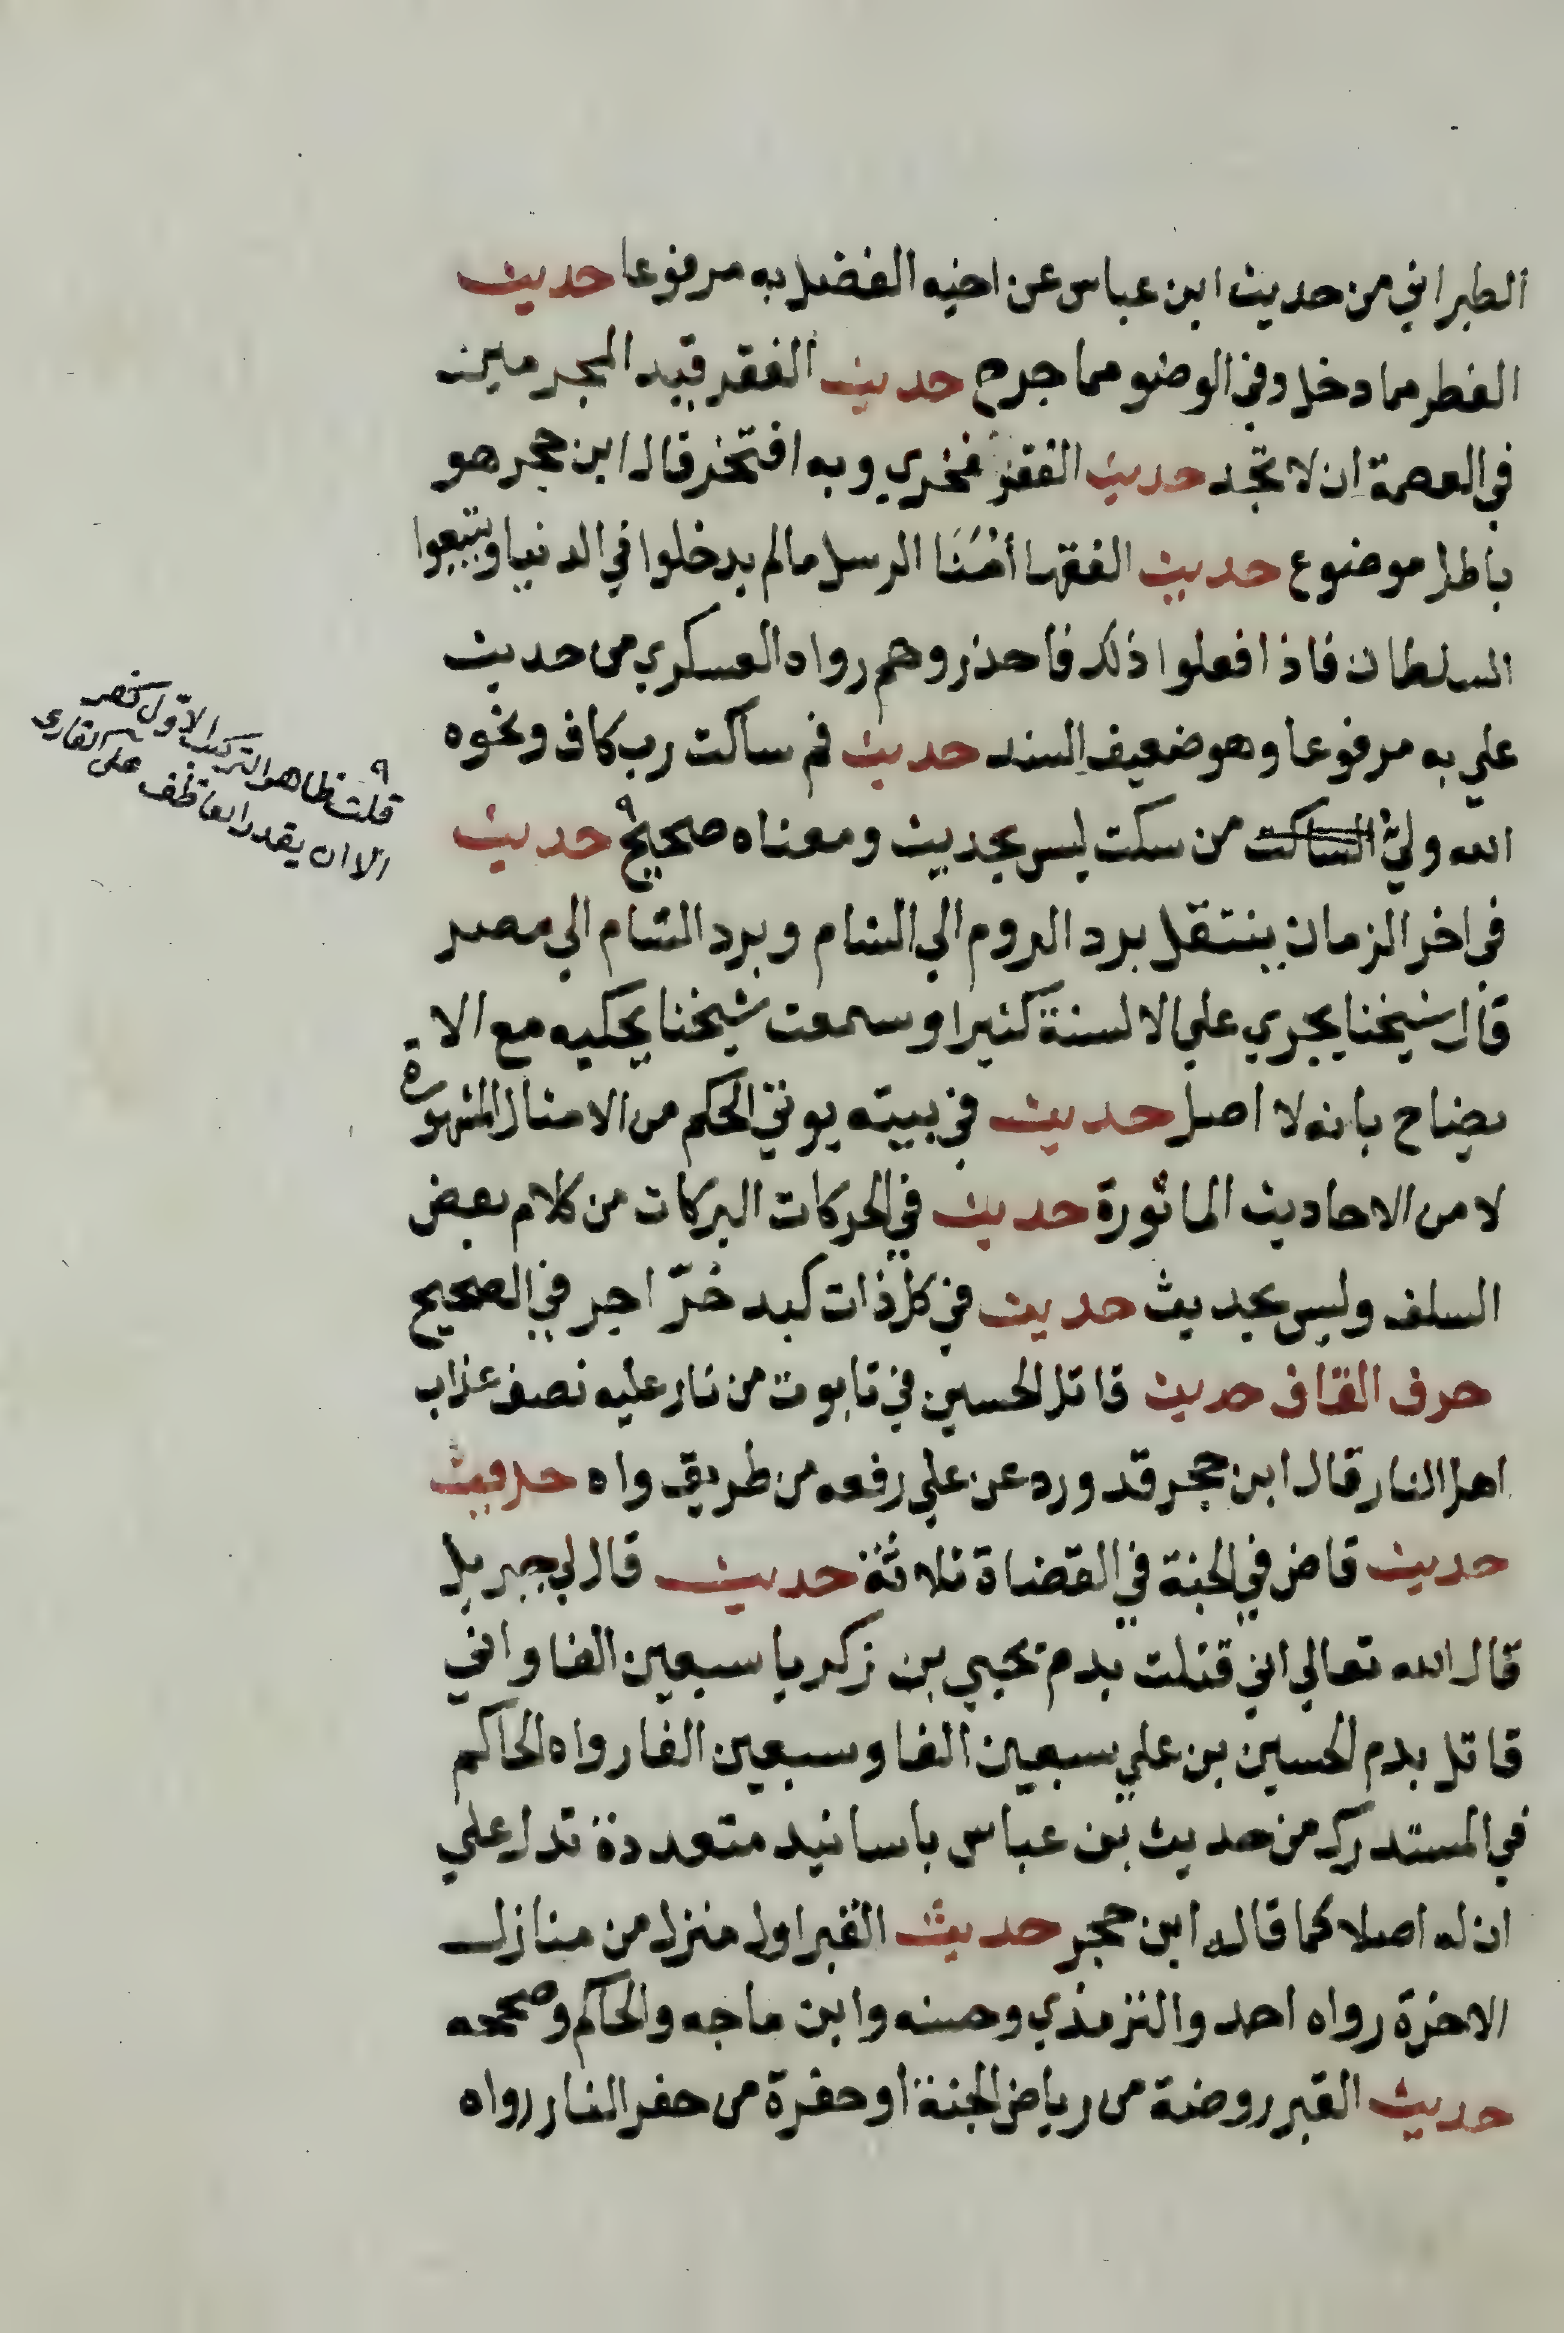 الطبراني من حديث ابن عباس عن اخيه الفضل به مرفوعا حديث
الفطر مما دخل وفي الوضو مما خرج حديث الفقر قيد المجرمين
في العصمة ان لا تجد حديث الفقر فخري وبه افتخر قال ابن حجر هو
باطل موضوع حديث الفقها أُمَنَا الرسل مالم يدخلوا في الدنيا ويتبعوا
السلطان فاذا فعلوا ذلك فاحذروهم رواه العسكري من حديث
علي به مرفوعا وهو ضعيف السند حديث فم ساكت رب كاف ونحوه
الله وليّ الساكت من سكت ليس بحديث ومعناه صحيح ٩ حديث
في اخر الزمان ينتقل برد الروم الي الشام وبرد الشام الي مصر
قال شيخنا يجري علي الالسنة كثيرا وسمعت شيخنا يحكيه مع الا
يضاح بانه لا اصل حديث في بيته يوتي الحكم من الامثال المشهورة
لا من الاحاديث الماثورة حديث في الحركات البركات من كلام بعض
السلف وليس بحديث حديث في كل ذات كبد حرّا اجر في الصحيح
حرف القاف حديث قاتل الحسين في تابوت من نار عليه نصف عذاب
اهل النار قال ابن حجر قد ورد عن علي رفعه من طريق واه حديث
حديث قاض في الجنة في القضاة ثلاثة حديث قال لي جبريل
قال الله تعالي اني قتلت بدم يحيي بن زكريا سبعين الفا واني
قاتل بدم الحسين بن علي سبعين الفا وسبعين الفا رواه الحاكم
في المستدرك من حديث بن عباس باسانيد متعددة تدل علي
ان له اصلا كما قاله ابن حجر حديث القبر اول منزل من منازل
الاخرة رواه احمد والترمذي وحسنه وابن ماجه والحاكم وصححه
حديث القبر روضة من رياض الجنة او حفرة من حفر النار رواه
٩
قلت ظاهر التركيب الاول
الا ان يقدر العاطف علي القاري